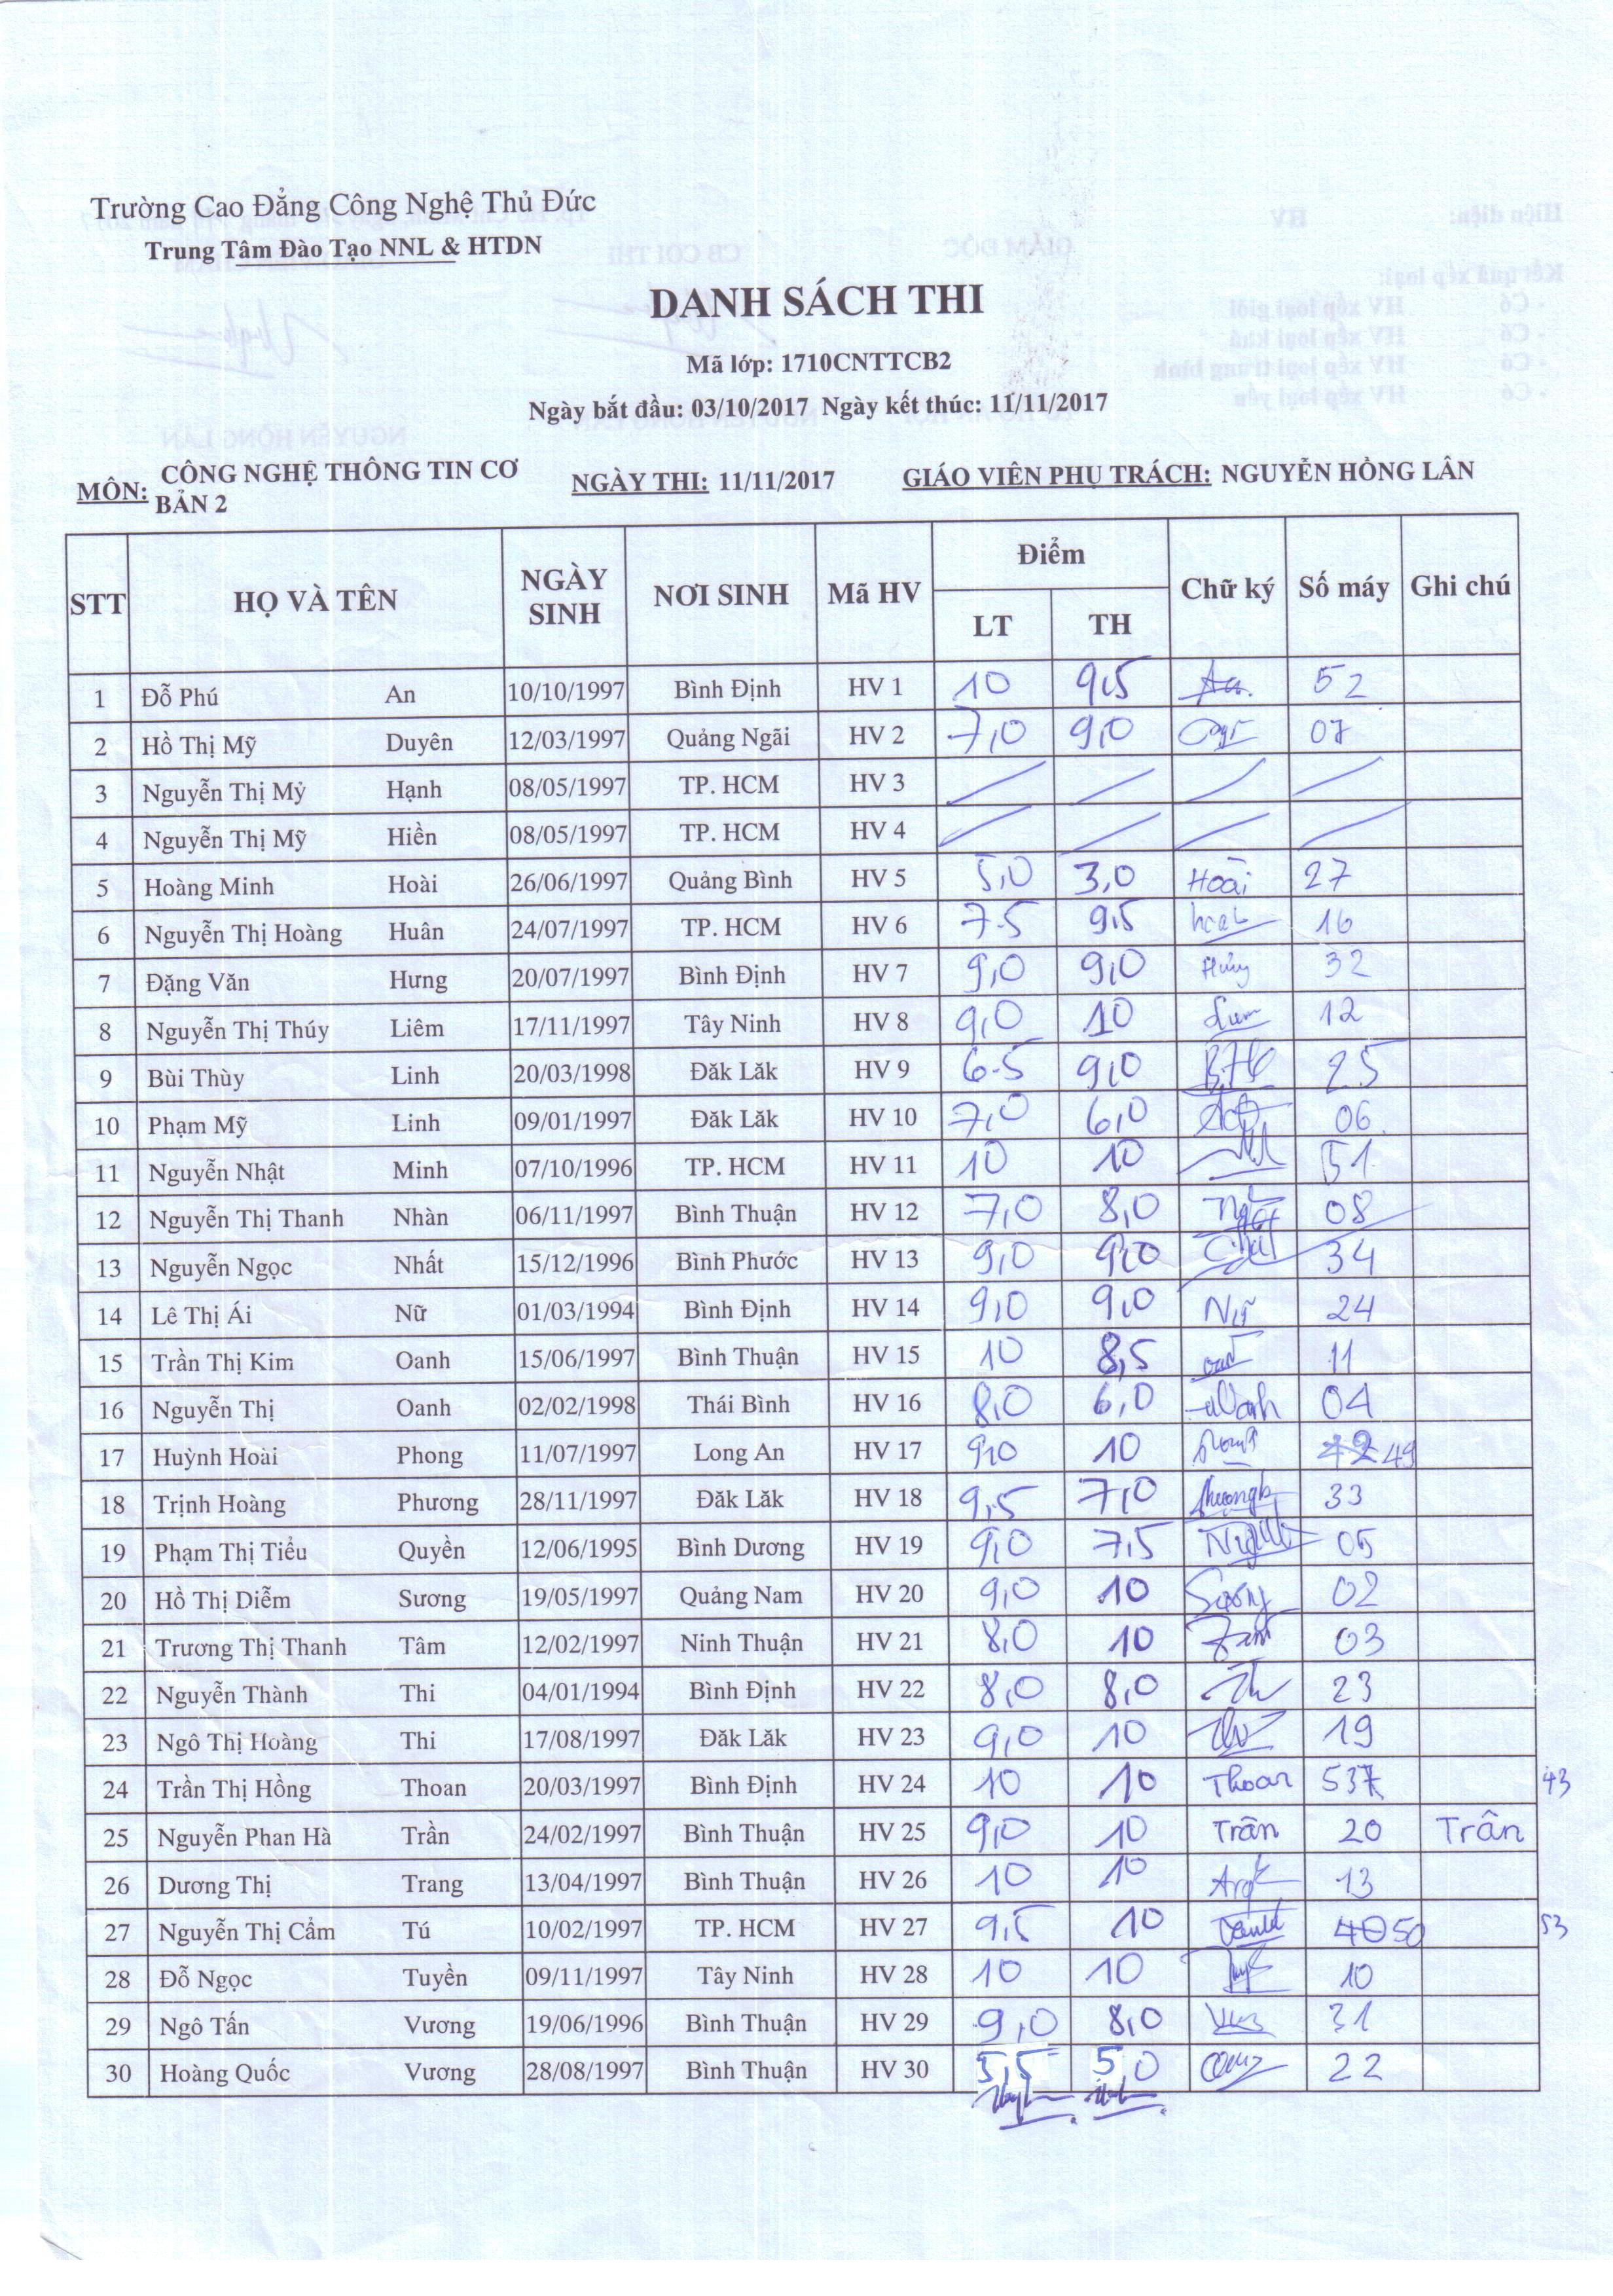 Trường Cao Đẳng Công Nghệ Thủ Đức
Trung Tâm Đào Tạo NNL & HTDN
DANH SÁCH THI
Mã lớp: 1710CNTTCB2
Ngày bắt đầu: 03/10/2017 Ngày kết thúc: 11/11/2017
MÔN: CÔNG NGHỆ THÔNG TIN CƠ BẢN 2 NGÀY THI: 11/11/2017 GIÁO VIÊN PHỤ TRÁCH: NGUYỄN HỒNG LÂN
STT HỌ VÀ TÊN NGÀY SINH NƠI SINH Mã HV Điểm Chữ ký Số máy Ghi chú
LT TH
1 Đỗ Phú An 10/10/1997 Bình Định HV 1 10 9,5 52
2 Hồ Thị Mỹ Duyên 12/03/1997 Quảng Ngãi HV 2 7,0 9,0 07
3 Nguyễn Thị Mỷ Hạnh 08/05/1997 TP. HCM HV 3
4 Nguyễn Thị Mỹ Hiền 08/05/1997 TP. HCM HV 4
5 Hoàng Minh Hoài 26/06/1997 Quảng Bình HV 5 5,0 3,0 Hoài 27
6 Nguyễn Thị Hoàng Huân 24/07/1997 TP. HCM HV 6 7.5 9,5 16
7 Đặng Văn Hưng 20/07/1997 Bình Định HV 7 9,0 9,0 32
8 Nguyễn Thị Thúy Liêm 17/11/1997 Tây Ninh HV 8 9,0 10 12
9 Bùi Thùy Linh 20/03/1998 Đăk Lăk HV 9 6.5 9,0 25
10 Phạm Mỹ Linh 09/01/1997 Đăk Lăk HV 10 7,0 6,0 06
11 Nguyễn Nhật Minh 07/10/1996 TP. HCM HV 11 10 10 51
12 Nguyễn Thị Thanh Nhàn 06/11/1997 Bình Thuận HV 12 7,0 8,0 08
13 Nguyễn Ngọc Nhất 15/12/1996 Bình Phước HV 13 9,0 9,0 34
14 Lê Thị Ái Nữ 01/03/1994 Bình Định HV 14 9,0 9,0 Nữ 24
15 Trần Thị Kim Oanh 15/06/1997 Bình Thuận HV 15 10 8,5 11
16 Nguyễn Thị Oanh 02/02/1998 Thái Bình HV 16 8,0 6,0 04
17 Huỳnh Hoài Phong 11/07/1997 Long An HV 17 9,0 10 42 49
18 Trịnh Hoàng Phương 28/11/1997 Đăk Lăk HV 18 9,5 7,0 33
19 Phạm Thị Tiểu Quyền 12/06/1995 Bình Dương HV 19 9,0 7,5 05
20 Hồ Thị Diễm Sương 19/05/1997 Quảng Nam HV 20 9,0 10 Sương 02
21 Trương Thị Thanh Tâm 12/02/1997 Ninh Thuận HV 21 8,0 10 03
22 Nguyễn Thành Thi 04/01/1994 Bình Định HV 22 8,0 8,0 23
23 Ngô Thị Hoàng Thi 17/08/1997 Đăk Lăk HV 23 9,0 10 19
24 Trần Thị Hồng Thoan 20/03/1997 Bình Định HV 24 10 10 Thoan 43
25 Nguyễn Phan Hà Trân 24/02/1997 Bình Thuận HV 25 9,0 10 Trân 20 Trân
26 Dương Thị Trang 13/04/1997 Bình Thuận HV 26 10 10 13
27 Nguyễn Thị Cẩm Tú 10/02/1997 TP. HCM HV 27 9,5 10 40 50 53
28 Đỗ Ngọc Tuyền 09/11/1997 Tây Ninh HV 28 10 10 10
29 Ngô Tấn Vương 19/06/1996 Bình Thuận HV 29 9,0 8,0 31
30 Hoàng Quốc Vương 28/08/1997 Bình Thuận HV 30 5,5 5,0 22